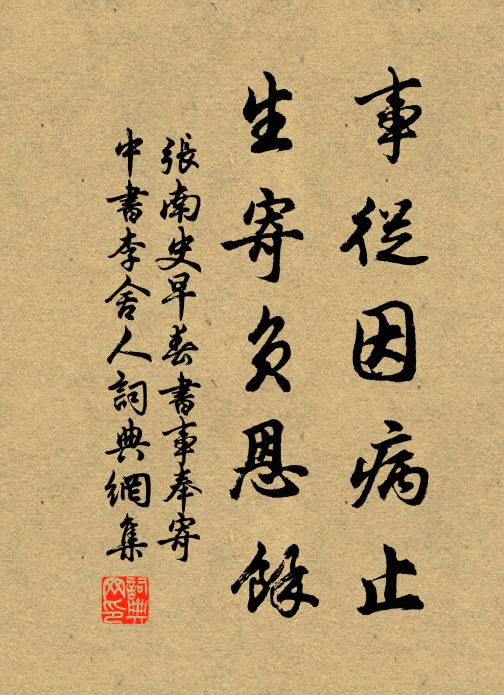 事從因病止
生寄負恩餘
張南史早春書事奉寄
中書李舍人詞典網集
詞典網印